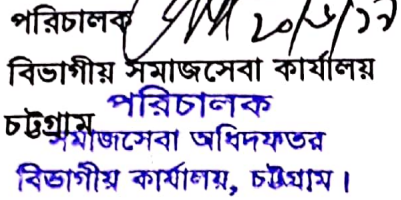 পরিচালক
বিভাগীয় সমাজসেবা কার্যালয়
চট্টগ্রাম
পরিচালক
সমাজসেবা অধিদফতর
বিভাগীয় কার্যালয়, চট্টগ্রাম।